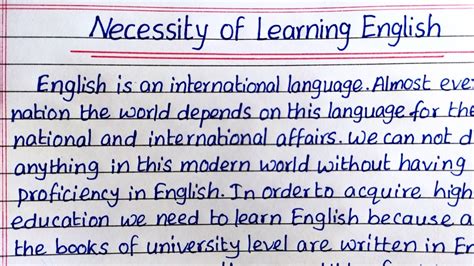 Necessity of Learning English
English is an international language. Almost eve
nation the world depends on this language for the
national and international affairs. We can not d
anything in this modern world without having
proficiency in English. In order to acquire high
education we need to learn English because a
the books of university level are written in En